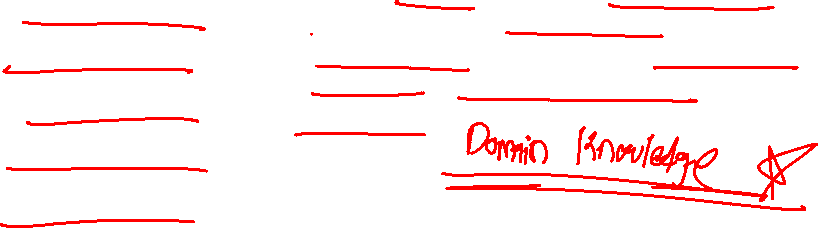 Domain Knowledge